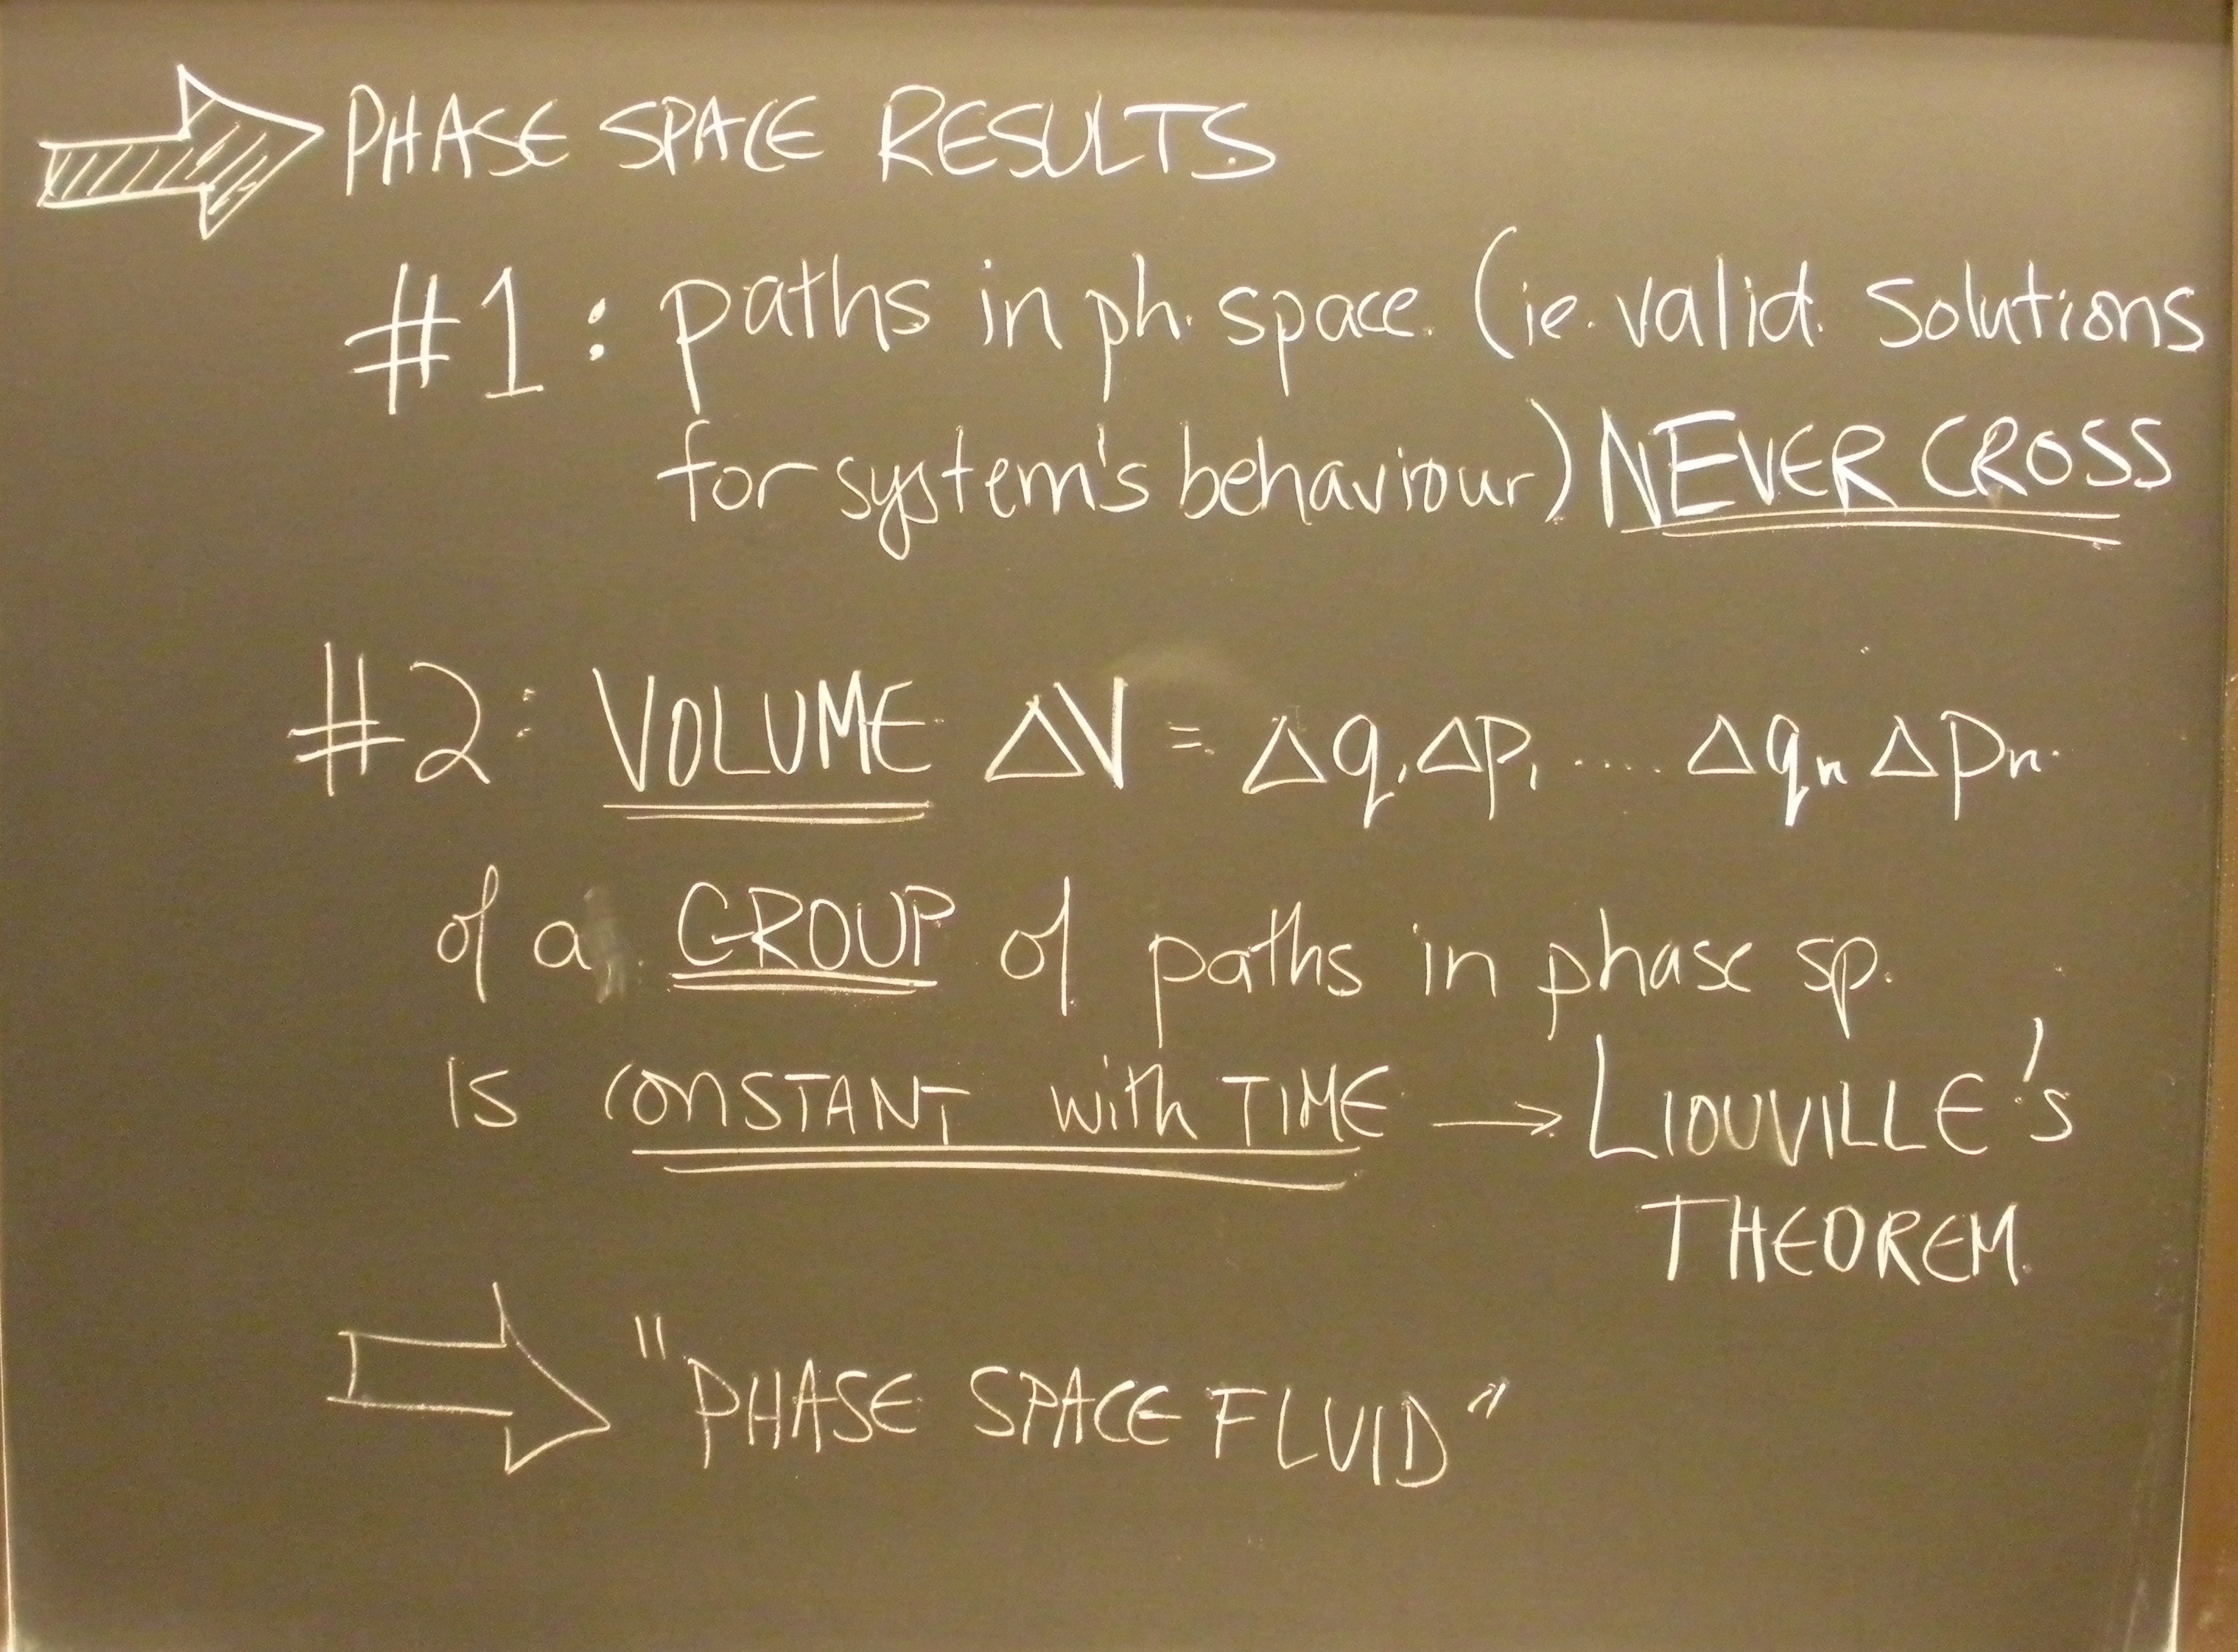 PHASE SPACE RESULTS
#1: paths in ph. space. (ie. valid. solutions
for system's behaviour) NEVER CROSS
#2: VOLUME ΔV = Δq₁Δp₁ .... Δqₙ Δpₙ.
of a GROUP of paths in phase sp.
IS CONSTANT with TIME → LIOUVILLE's
THEOREM.
"PHASE SPACE FLUID"